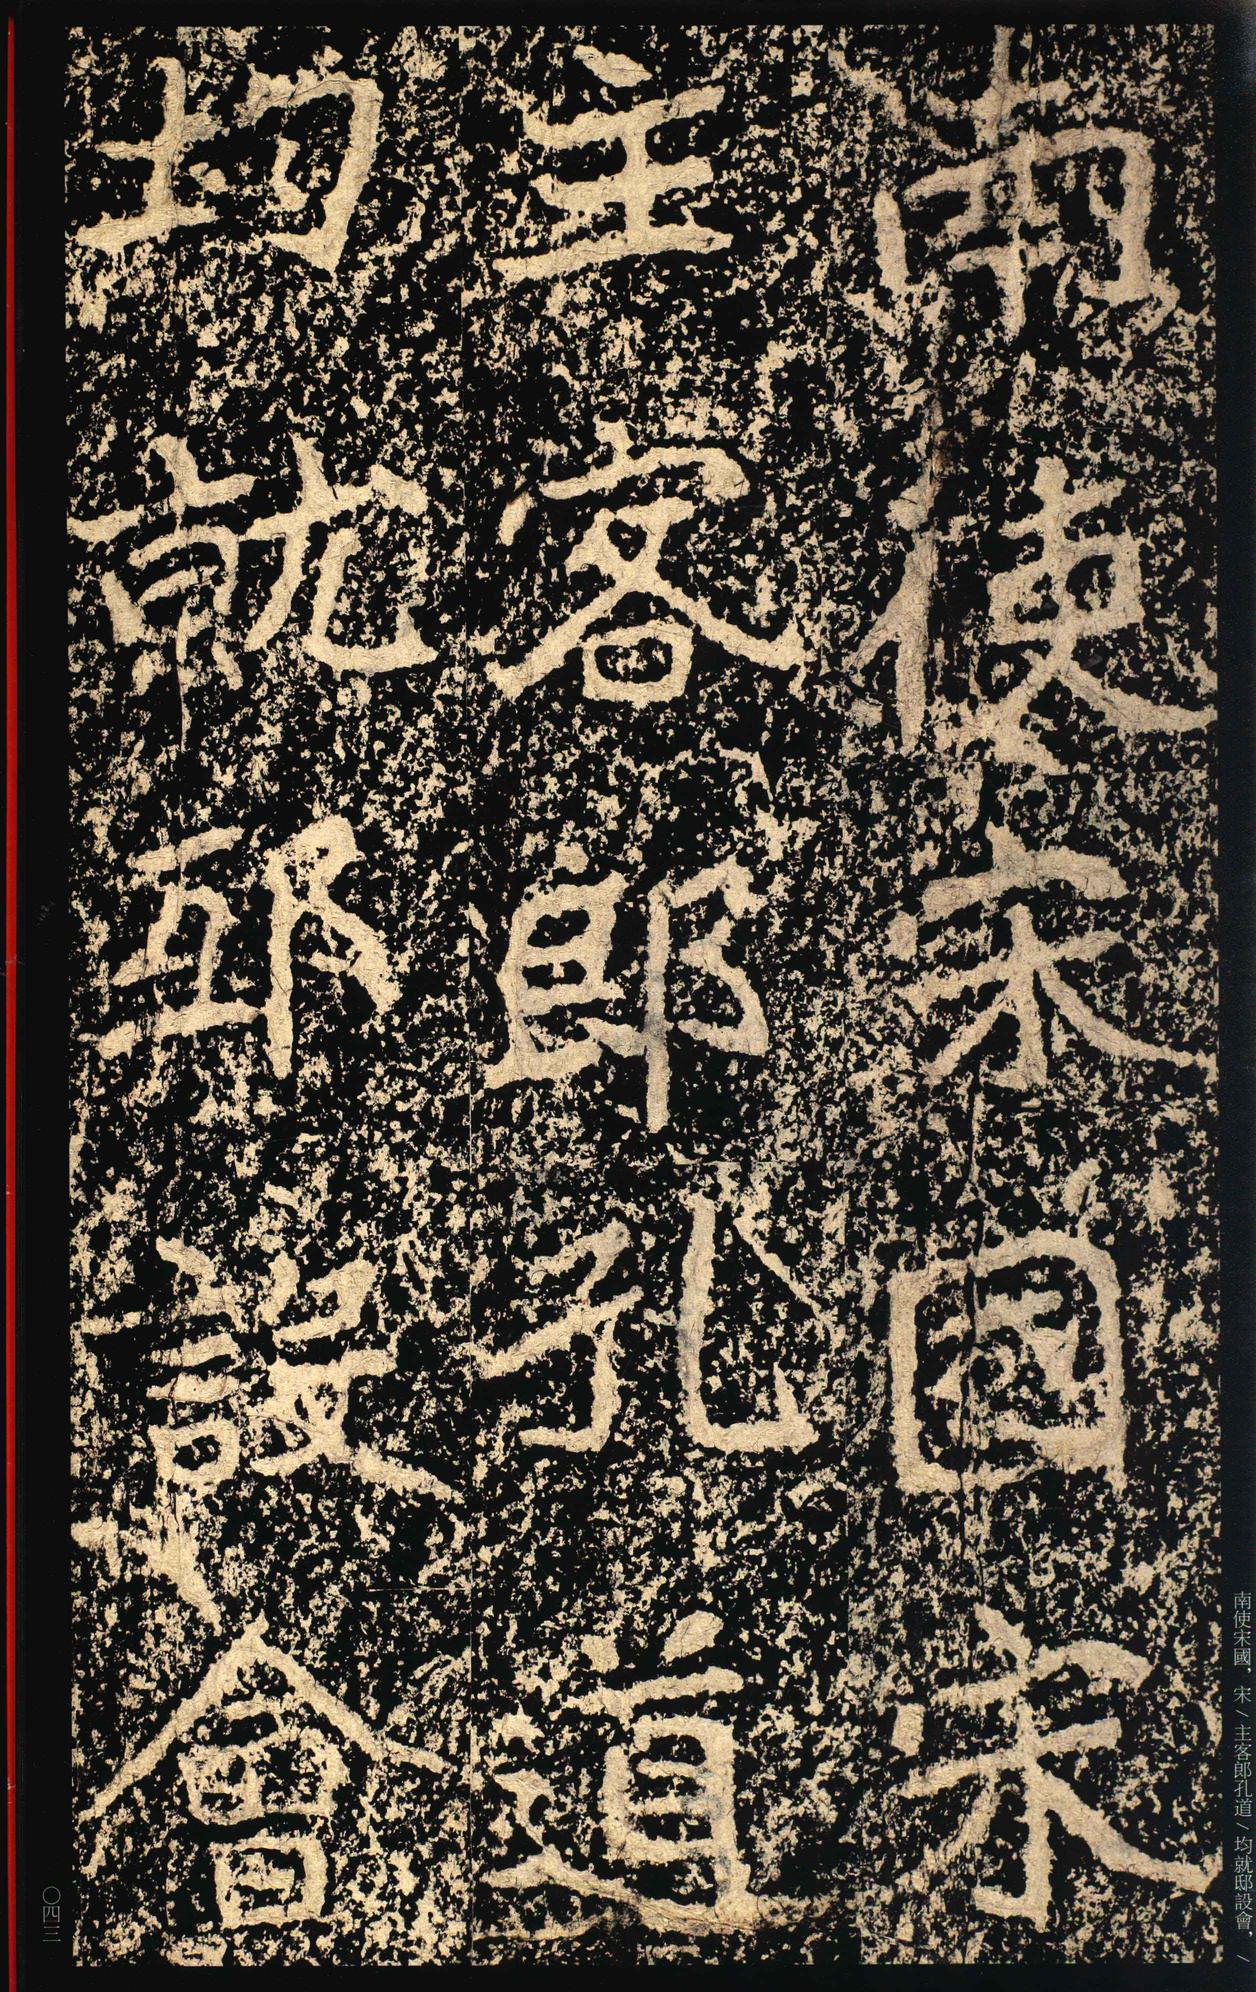 南使宋國宋
主客郎孔道
均就邸設會
南使宋國 宋/主客郎孔道/均就邸設會，/
〇四三